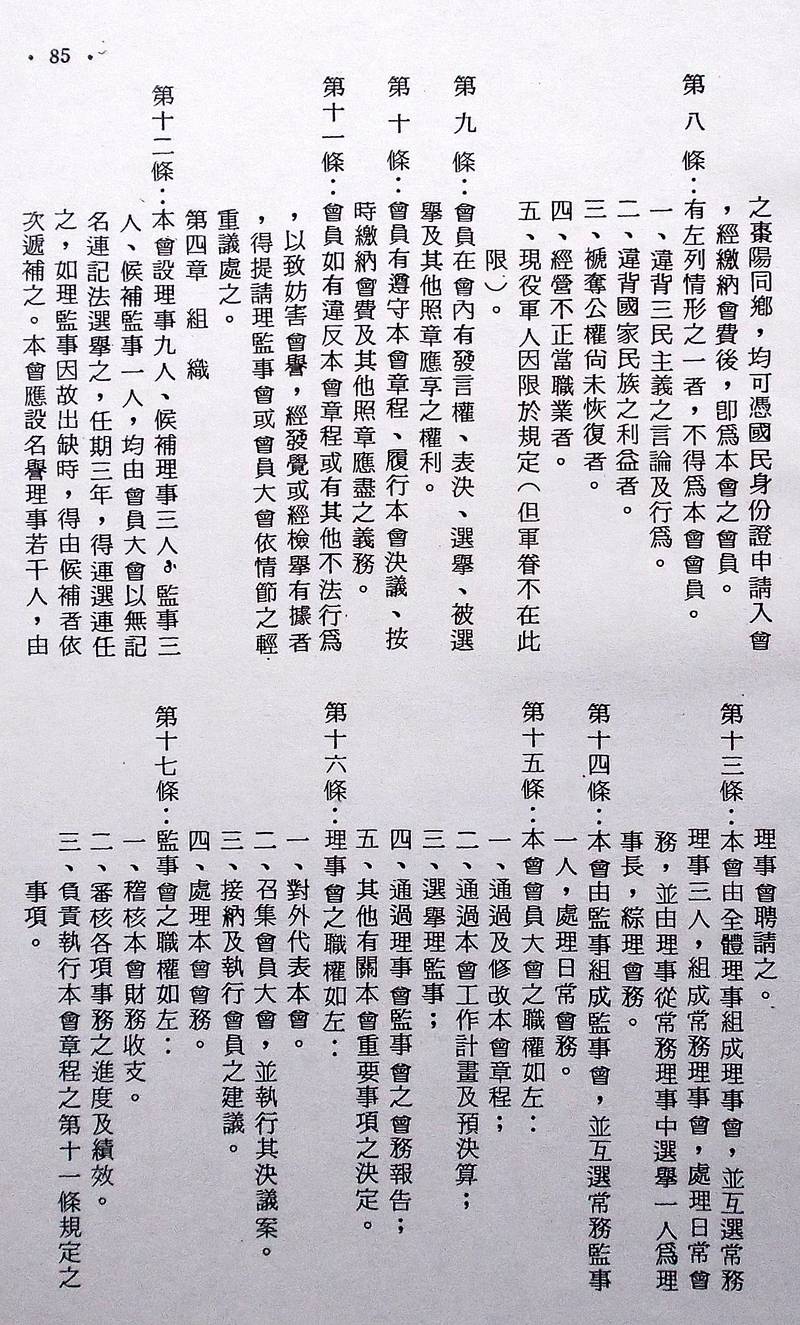 • 85 •
之棗陽同鄉，均可憑國民身份證申請入會
，經繳納會費後，卽爲本會之會員。
第八條：有左列情形之一者，不得爲本會會員。
一、違背三民主義之言論及行爲。
二、違背國家民族之利益者。
三、褫奪公權尙未恢復者。
四、經營不正當職業者。
五、現役軍人因限於規定（但軍眷不在此
限）。
第九條：會員在會內有發言權、表決、選舉、被選
舉及其他照章應享之權利。
第十條：會員有遵守本會章程、履行本會決議、按
時繳納會費及其他照章應盡之義務。
第十一條：會員如有違反本會章程或有其他不法行爲
，以致妨害會譽，經發覺或經檢舉有據者
，得提請理監事會或會員大會依情節之輕
重議處之。
第四章 組織
第十二條：本會設理事九人、候補理事三人，監事三
人、候補監事一人，均由會員大會以無記
名連記法選舉之，任期三年，得連選連任
之，如理監事因故出缺時，得由候補者依
次遞補之。本會應設名譽理事若干人，由
理事會聘請之。
第十三條：本會由全體理事組成理事會，並互選常務
理事三人，組成常務理事會，處理日常會
務，並由理事從常務理事中選舉一人爲理
事長，綜理會務。
第十四條：本會由監事組成監事會，並互選常務監事
一人，處理日常會務。
第十五條：本會會員大會之職權如左：
一、通過及修改本會章程；
二、通過本會工作計畫及預決算；
三、選舉理監事；
四、通過理事會監事會之會務報告；
五、其他有關本會重要事項之決定。
第十六條：理事會之職權如左：
一、對外代表本會。
二、召集會員大會，並執行其決議案。
三、接納及執行會員之建議。
四、處理本會會務。
第十七條：監事會之職權如左：
一、稽核本會財務收支。
二、審核各項事務之進度及績效。
三、負責執行本會章程之第十一條規定之
事項。